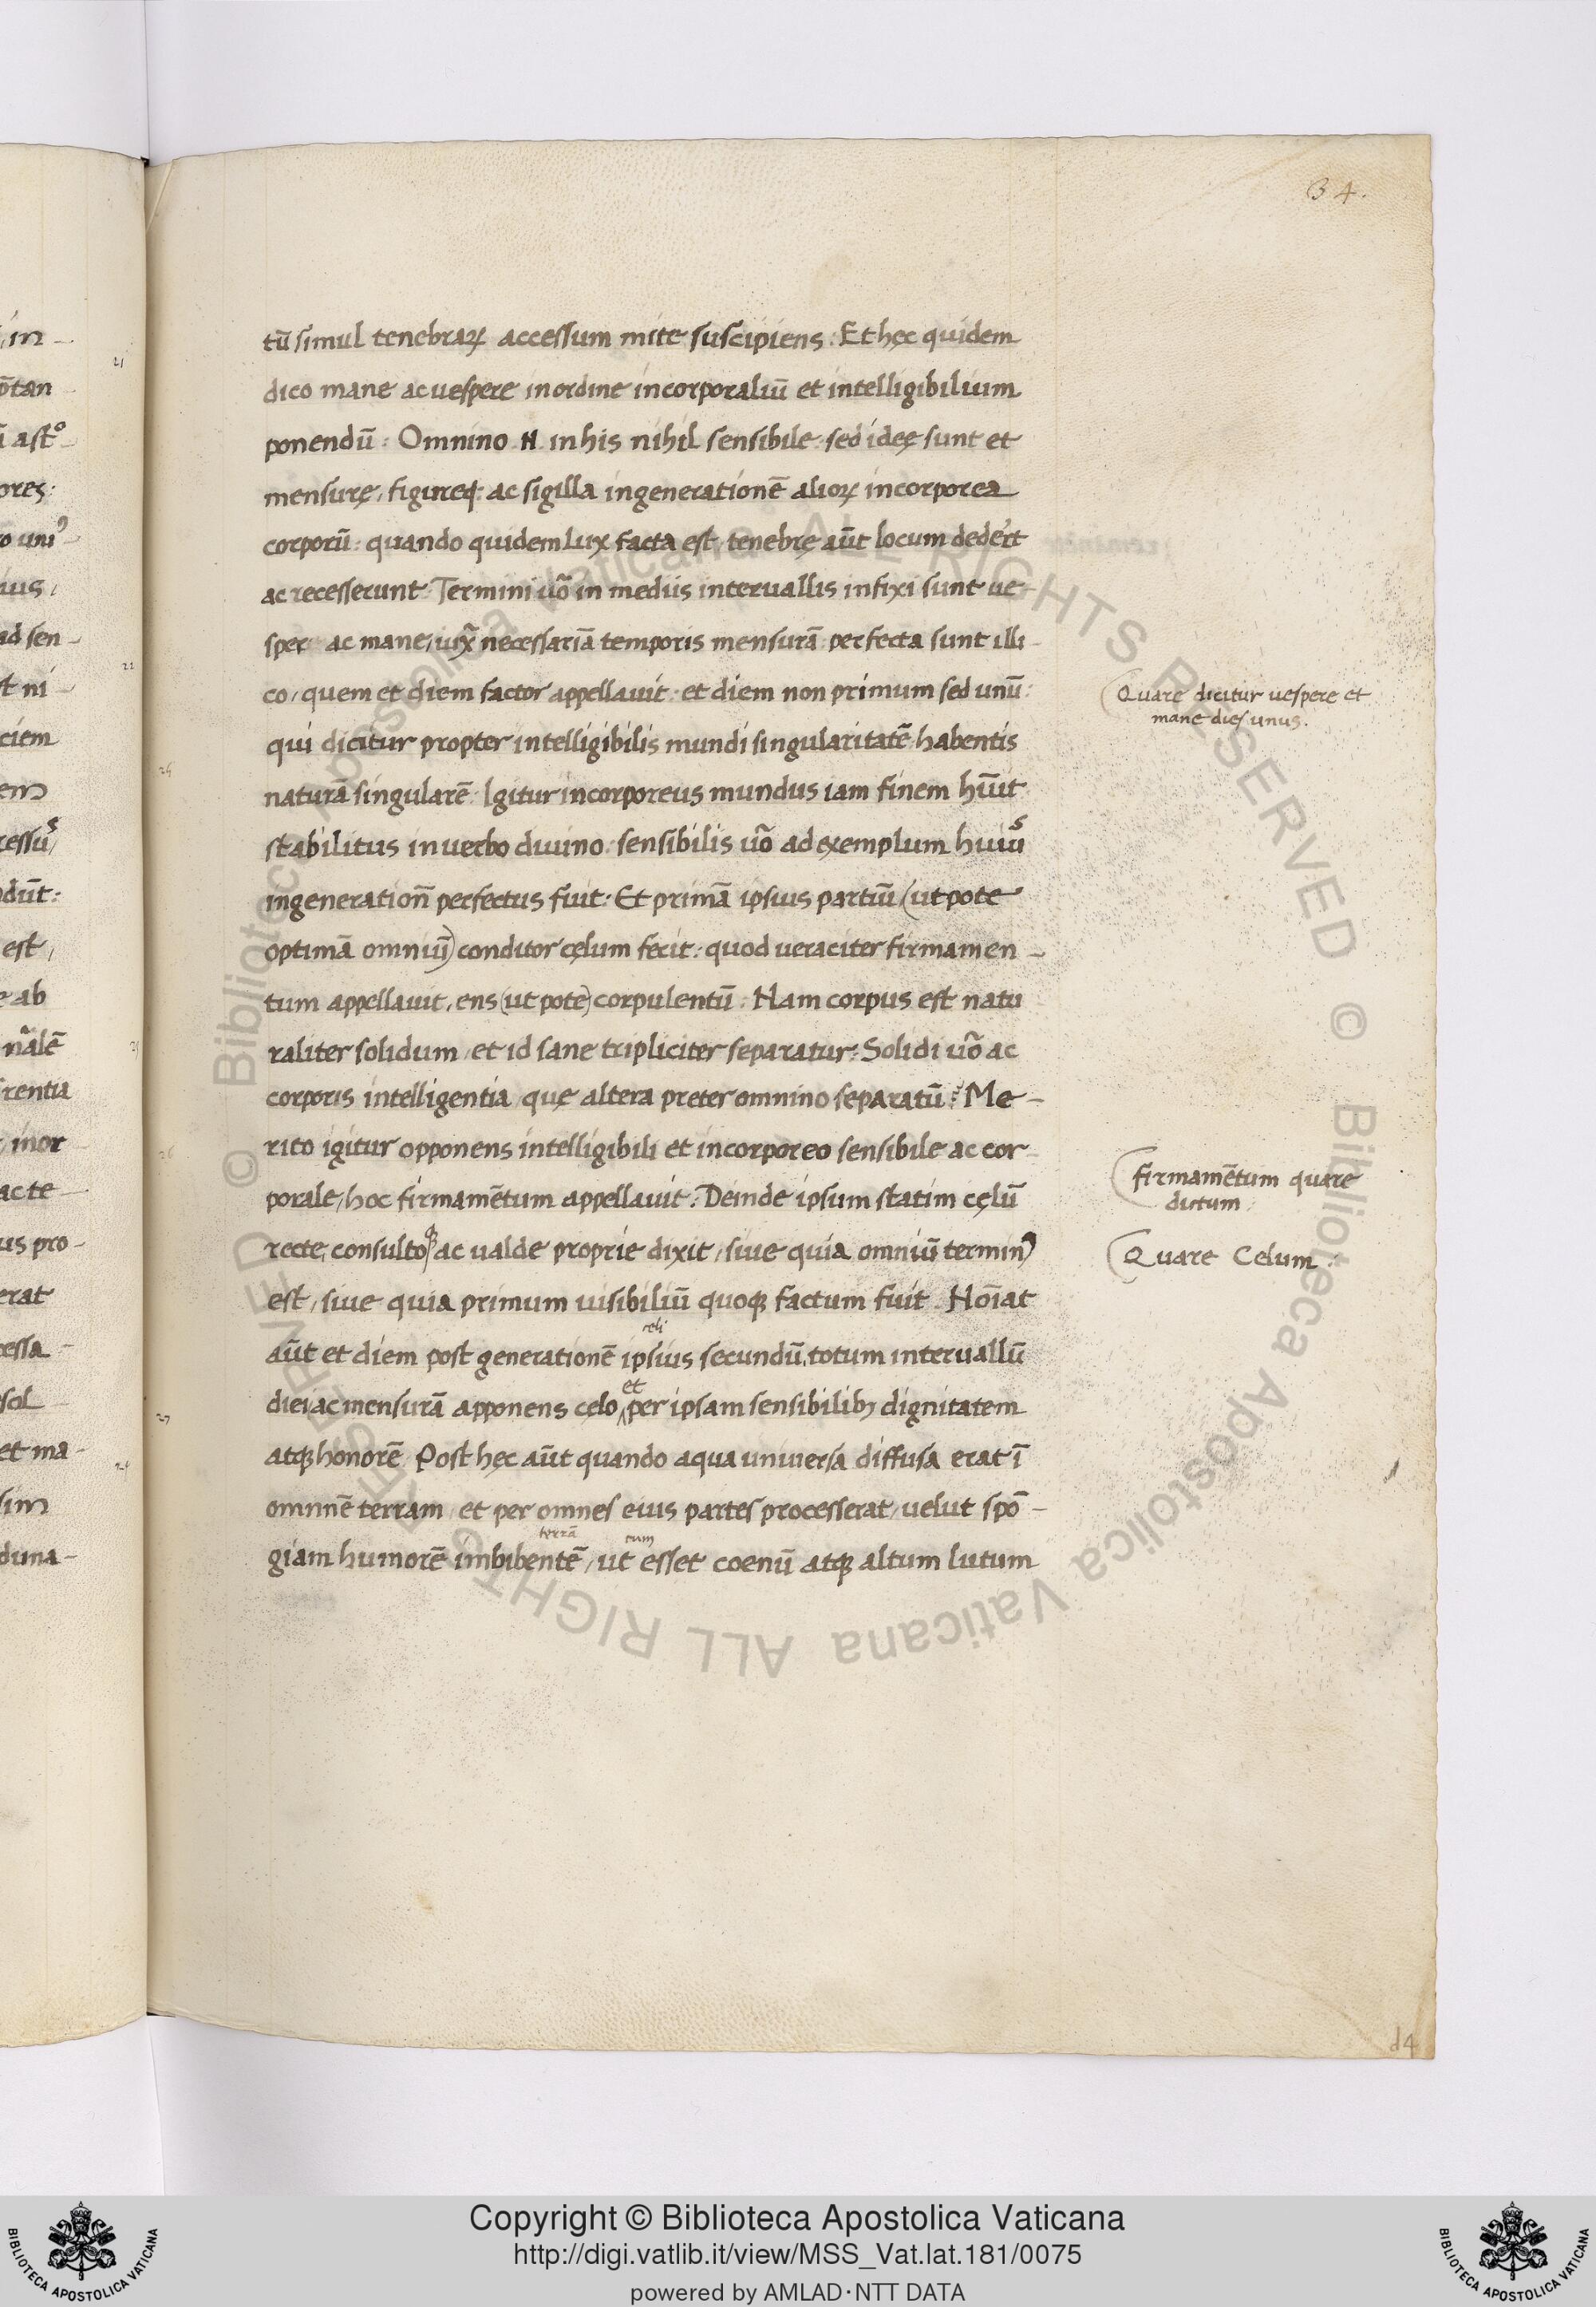 34.
tū simul tenebraꝝ accessum mite suscipiens: Et hęc quidem
dico mane ac uespere in ordine incorporaliū et intelligibilium
ponendū: Omnino .N. in his nihil sensibile: sed idęę sunt et
mensurę, figureq; ac sigilla in generationē alioꝝ incorporea
corporū: quando quidem lux facta est, tenebrę aūt locum dedert
ac recesserunt. Termini ūo in mediis interuallis infixi sunt ue-
spere ac mane, necessariā temporis mensurā perfecta sunt illi-
co, quem et diem factor appellauit: et diem non primum sed unū:
qui dicitur propter intelligibilis mundi singularitatē habentis
naturā singularē: Igitur incorporeus mundus iam finem hūit
stabilitus in uerbo diuino: sensibilis ūo ad exemplum huius
in generationē perfectus fuit. Et primā ipsius partiū (ut pote
optimā omniū) conditor cęlum fecit: quod ueraciter firmamen-
tum appellauit, ens (ut pote) corpulentū: Nam corpus est natu
raliter solidum, et id sane tripliciter separatur: Solidi ūo ac
corporis intelligentia, quę altera preter omnino separatū? Me-
rito igitur opponens intelligibili et incorporeo sensibile ac cor-
porale, hoc firmamētum appellauit. Deinde ipsum statim cęlū
recte, consultoq; ac ualde proprie dixit, siue quia omniū terminꝰ
est, siue quia primum uisibiliū quoq; factum fuit. Noīat
celi
aūt et diem post generationē ipsius secundū, totum interuallū
et
diei ac mensurā apponens celo, per ipsam sensibilibꝫ dignitatem
atq; honorē. Post hęc aūt quando aqua uniuersa diffusa erat ī
omnē terram, et per omnes eius partes processerat, uelut spō-
terrā cum
giam humorē imbibentē, ut esset coenū atq; altum lutum
Quare dicitur uespere et
mane dies unus.
firmamētum quare
dictum.
Quare Celum:
d4
in-
ōtan
ores:
ius,
ad sen-
st ni-
ciem
em
dūt:
est,
e ab
nālē
rentia
inor
ac te-
us pro-
erat
cessa-
sol
et ma-
sim
duna-
© Biblioteca Apostolica Vaticana ALL RIGHTS RESERVED © Biblioteca Apostolica Vaticana ALL RIGHTS RESERVED
Copyright © Biblioteca Apostolica Vaticana
http://digi.vatlib.it/view/MSS_Vat.lat.181/0075
powered by AMLAD·NTT DATA
BIBLIOTECA APOSTOLICA VATICANA
BIBLIOTECA APOSTOLICA VATICANA